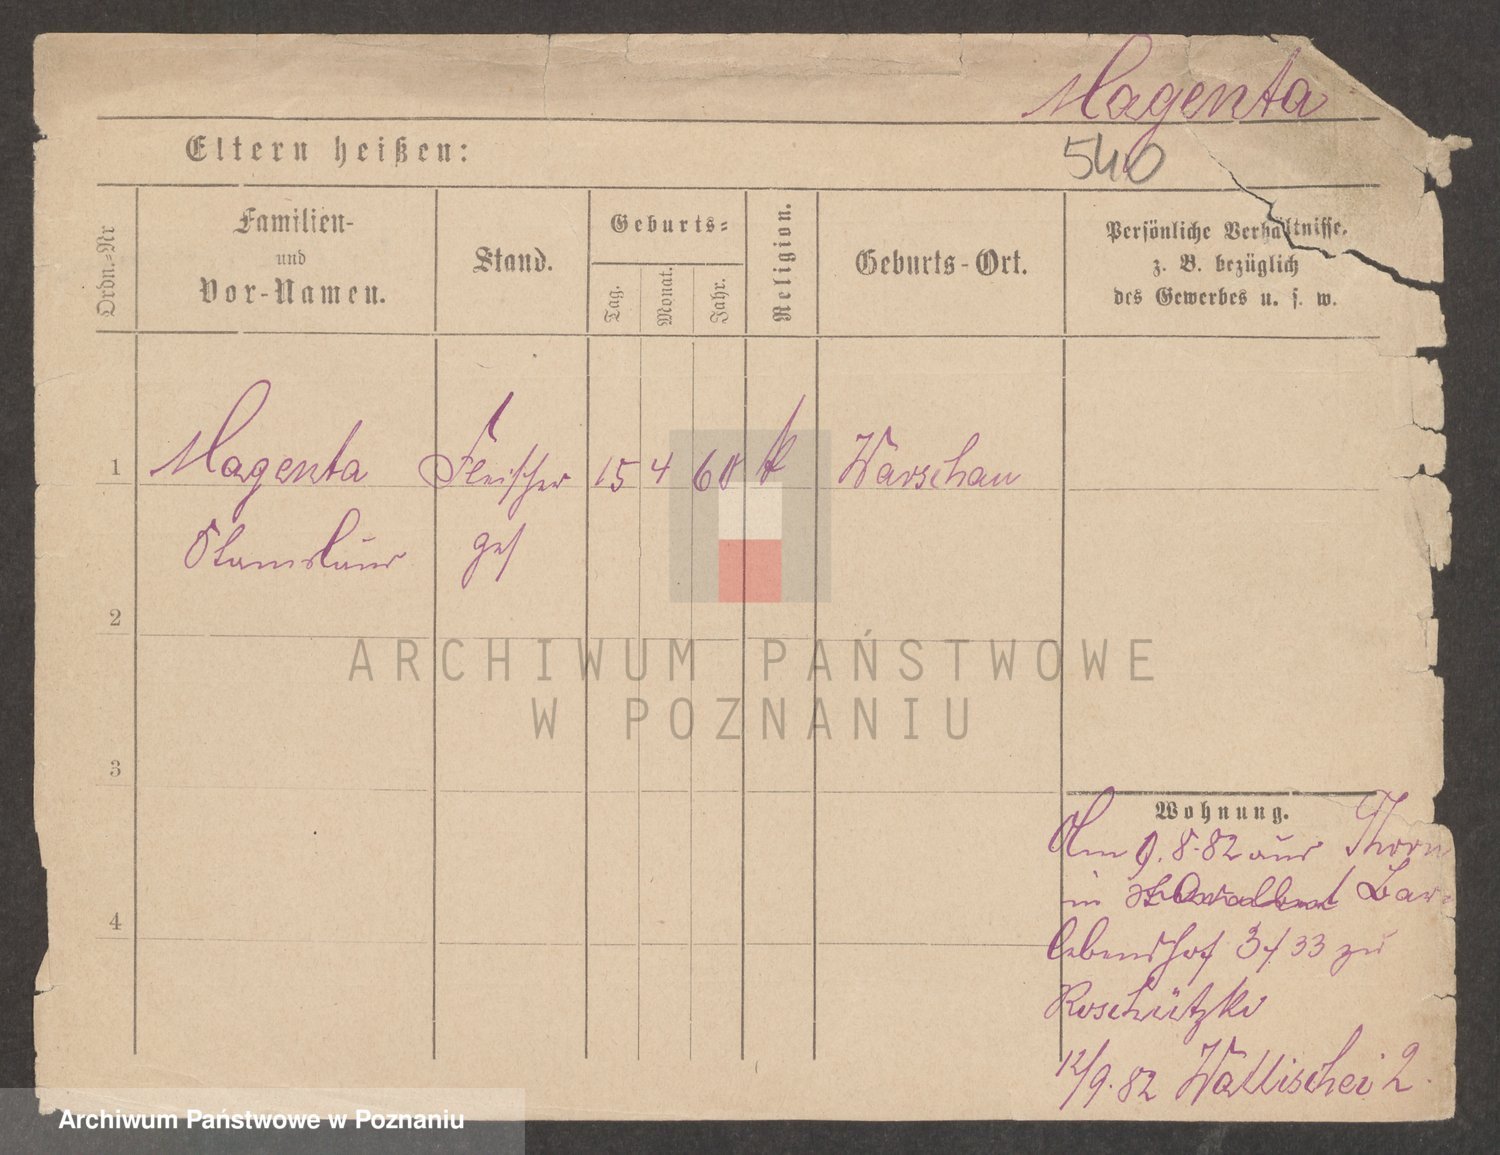 Magenta
Eltern heißen:
540
Ordn.-Nr
Familien-
und
Vor-Namen.
Stand.
Geburts-
Tag.
Monat.
Jahr.
Religion.
Geburts-Ort.
Persönliche Verhältnisse,
z. B. bezüglich
des Gewerbes u. s. w.
1 Magenta Fleischer 15 4 60 k Warschau
Stanislaus ges
2
3
4
Wohnung.
Am 9. 8. 82 aus Thorn
in Bar
lebenshof 3/33 zu
Roschützki
12/9. 82 Wallischei 2.
ARCHIWUM PAŃSTWOWE
W POZNANIU
Archiwum Państwowe w Poznaniu